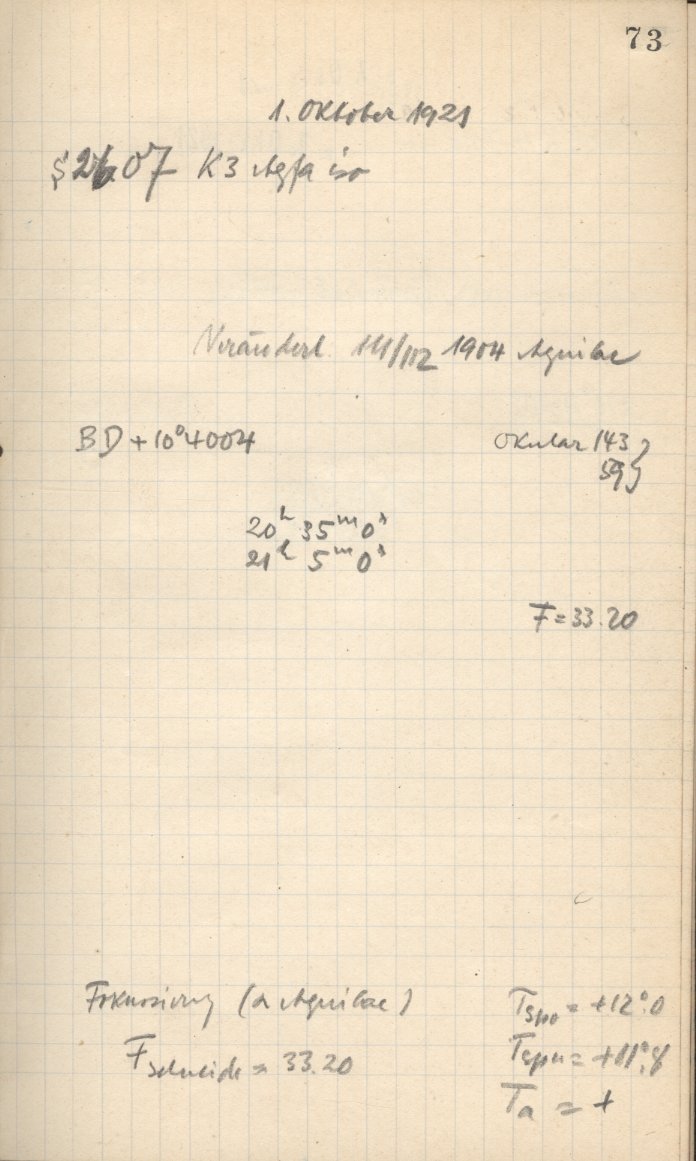 73
1. Oktober 1921
S 2607 K3 Agfa iso
Veränderl. 111/112 1904 Aquilae
BD + 10° 4004 Okular 143 }
59 }
20h 35m 0s
21h 5m 0s
F = 33.20
Fokussierung (α Aquilae) Tspo = +12°.0
FSchneide = 33.20 Tspu = +11°.8
Ta = +